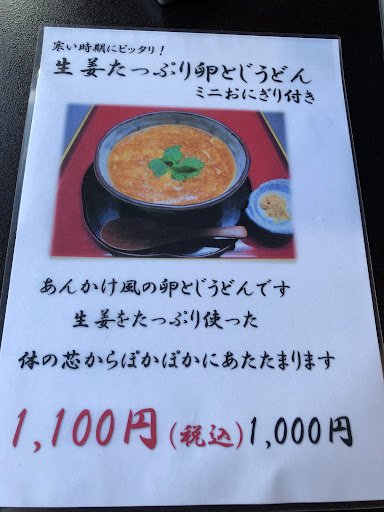 寒い時期にピッタリ！
生姜たっぷり卵とじうどん
ミニおにぎり付き
あんかけ風の卵とじうどんです
生姜をたっぷり使った
体の芯からぽかぽかにあたたまります
1,100円(税込)1,000円